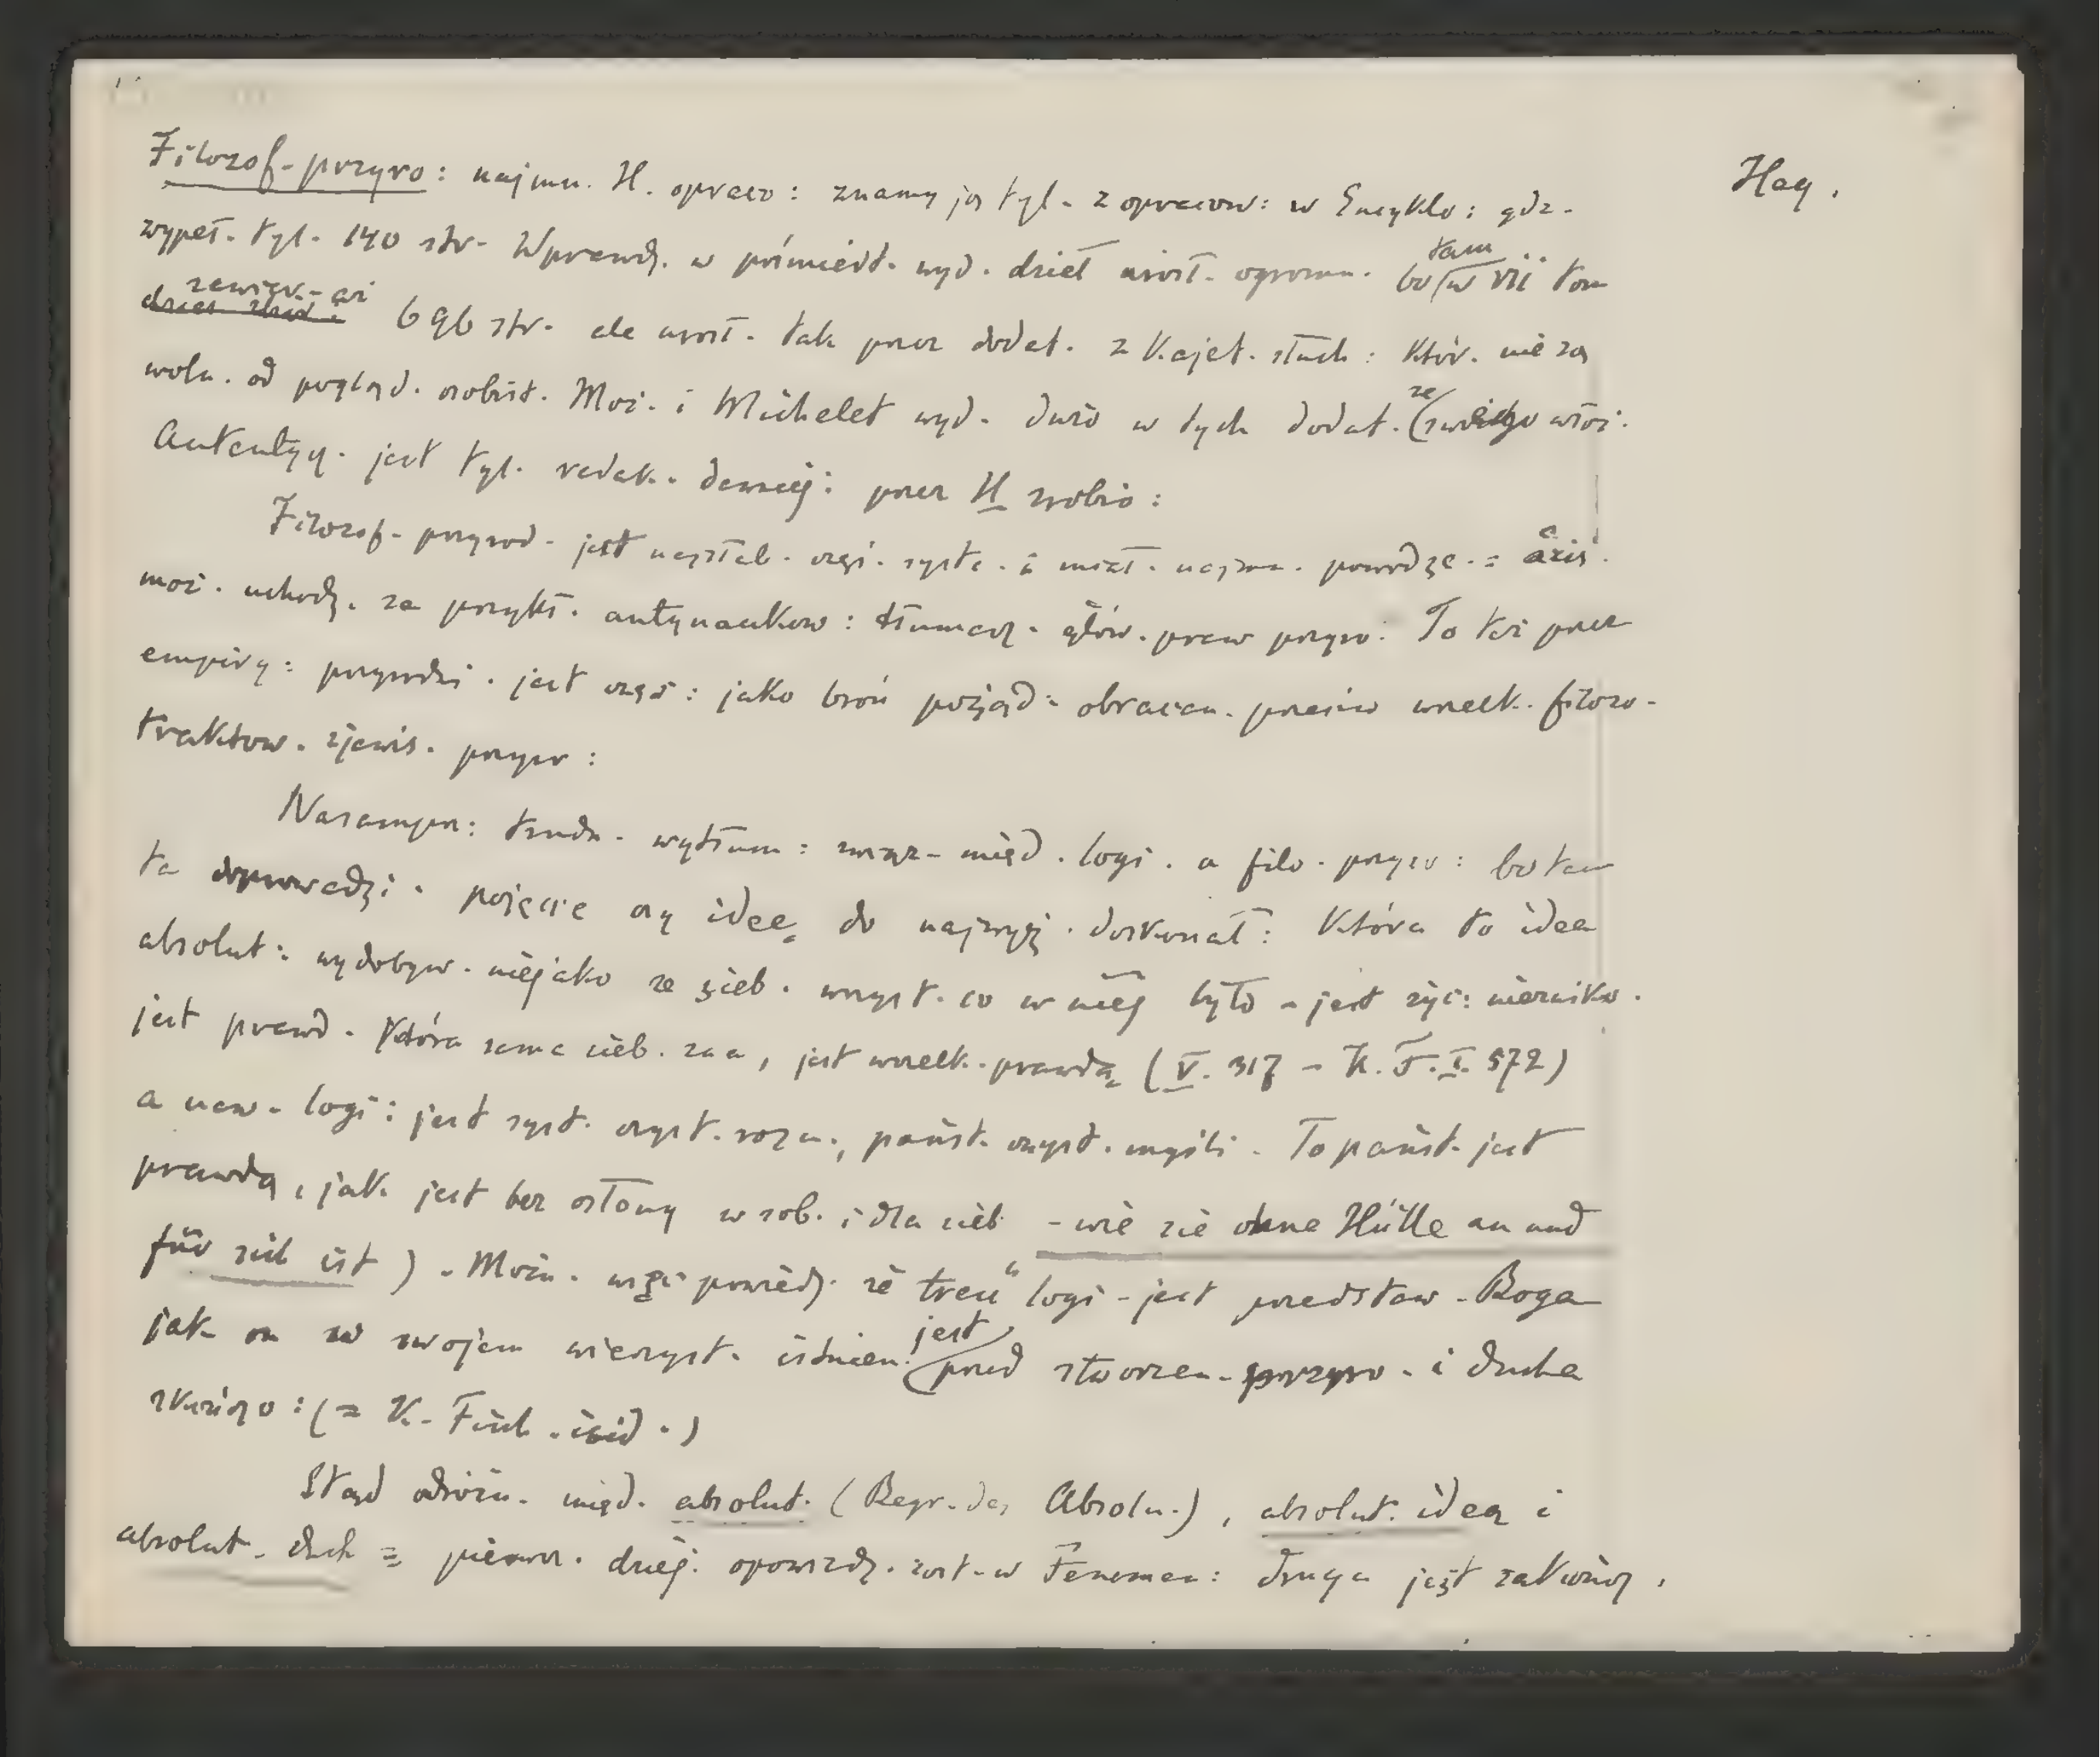 Heg.
Filozof- przyro: najmn. H. opraco: znamy ją tyl- z opracow: w Encyklo: gdz-
wypeł. tyl. 140 str- Wprawdz. w pośmiert. wyd. dzieł urosł- ogromn. bo tam w VII tom
zawier.- aż 696 str. ale urosł. tak przez dodat. z Kajet. słuch: Któr. nie są
woln. od pogląd. osobist. Moż. i Michelet wyd. dużo w tych dodat. ze swoiego włoż.
Autentycz. jest tyl. redak. dawniej: przez H zrobio:
Filozof- przyrod- jest najsłab. częś. syste. i miał. najmn. powodze.: dziś.
moż. uchodz. za przykł. antynaukow: tłumacz. głów. praw przyro. To też przez
empiry: przyrodni. jest częs: jako broń pożąd: obracan. przeciw wszelk. filozo-
traktow. zjawis. przyro:
Nasamprz: trudn. wytłum: związ- międ. logi. a filo. przyro: bo tam
ta doprowadzi. pojęcie czy ideę do najwyż. doskonał: Która to idea
absolut: wydobyw. niejako ze sieb. wszyst. co w niej było - jest życ: nieznik.
jest prawd. Która sama sieb. zna, jest wszelk. prawdą (V. 317 - K. F. I. 572)
a nau. logi: jest syst. czyst. rozu., pańsť. czyst. myśli. To państ. jest
prawdą, jak jest bez osłony w sob. i dla sieb - wie sie ohne Hülle an und
für sich ist). Możn. więc powiedz. że treś" logi - jest przedstaw. Boga
jak on w swojem wieczyst. istnien: jest przed stworzen. przyro. i ducha
skończo: (= K. Fisch. ibid.)
Stąd odróżn. międ. absolut. (Begr. des Absolu.), absolut. ideą i
absolut. duch = pierwsz. dziej. opowiedz. zost. w Fenomen: druga jest zakończ.